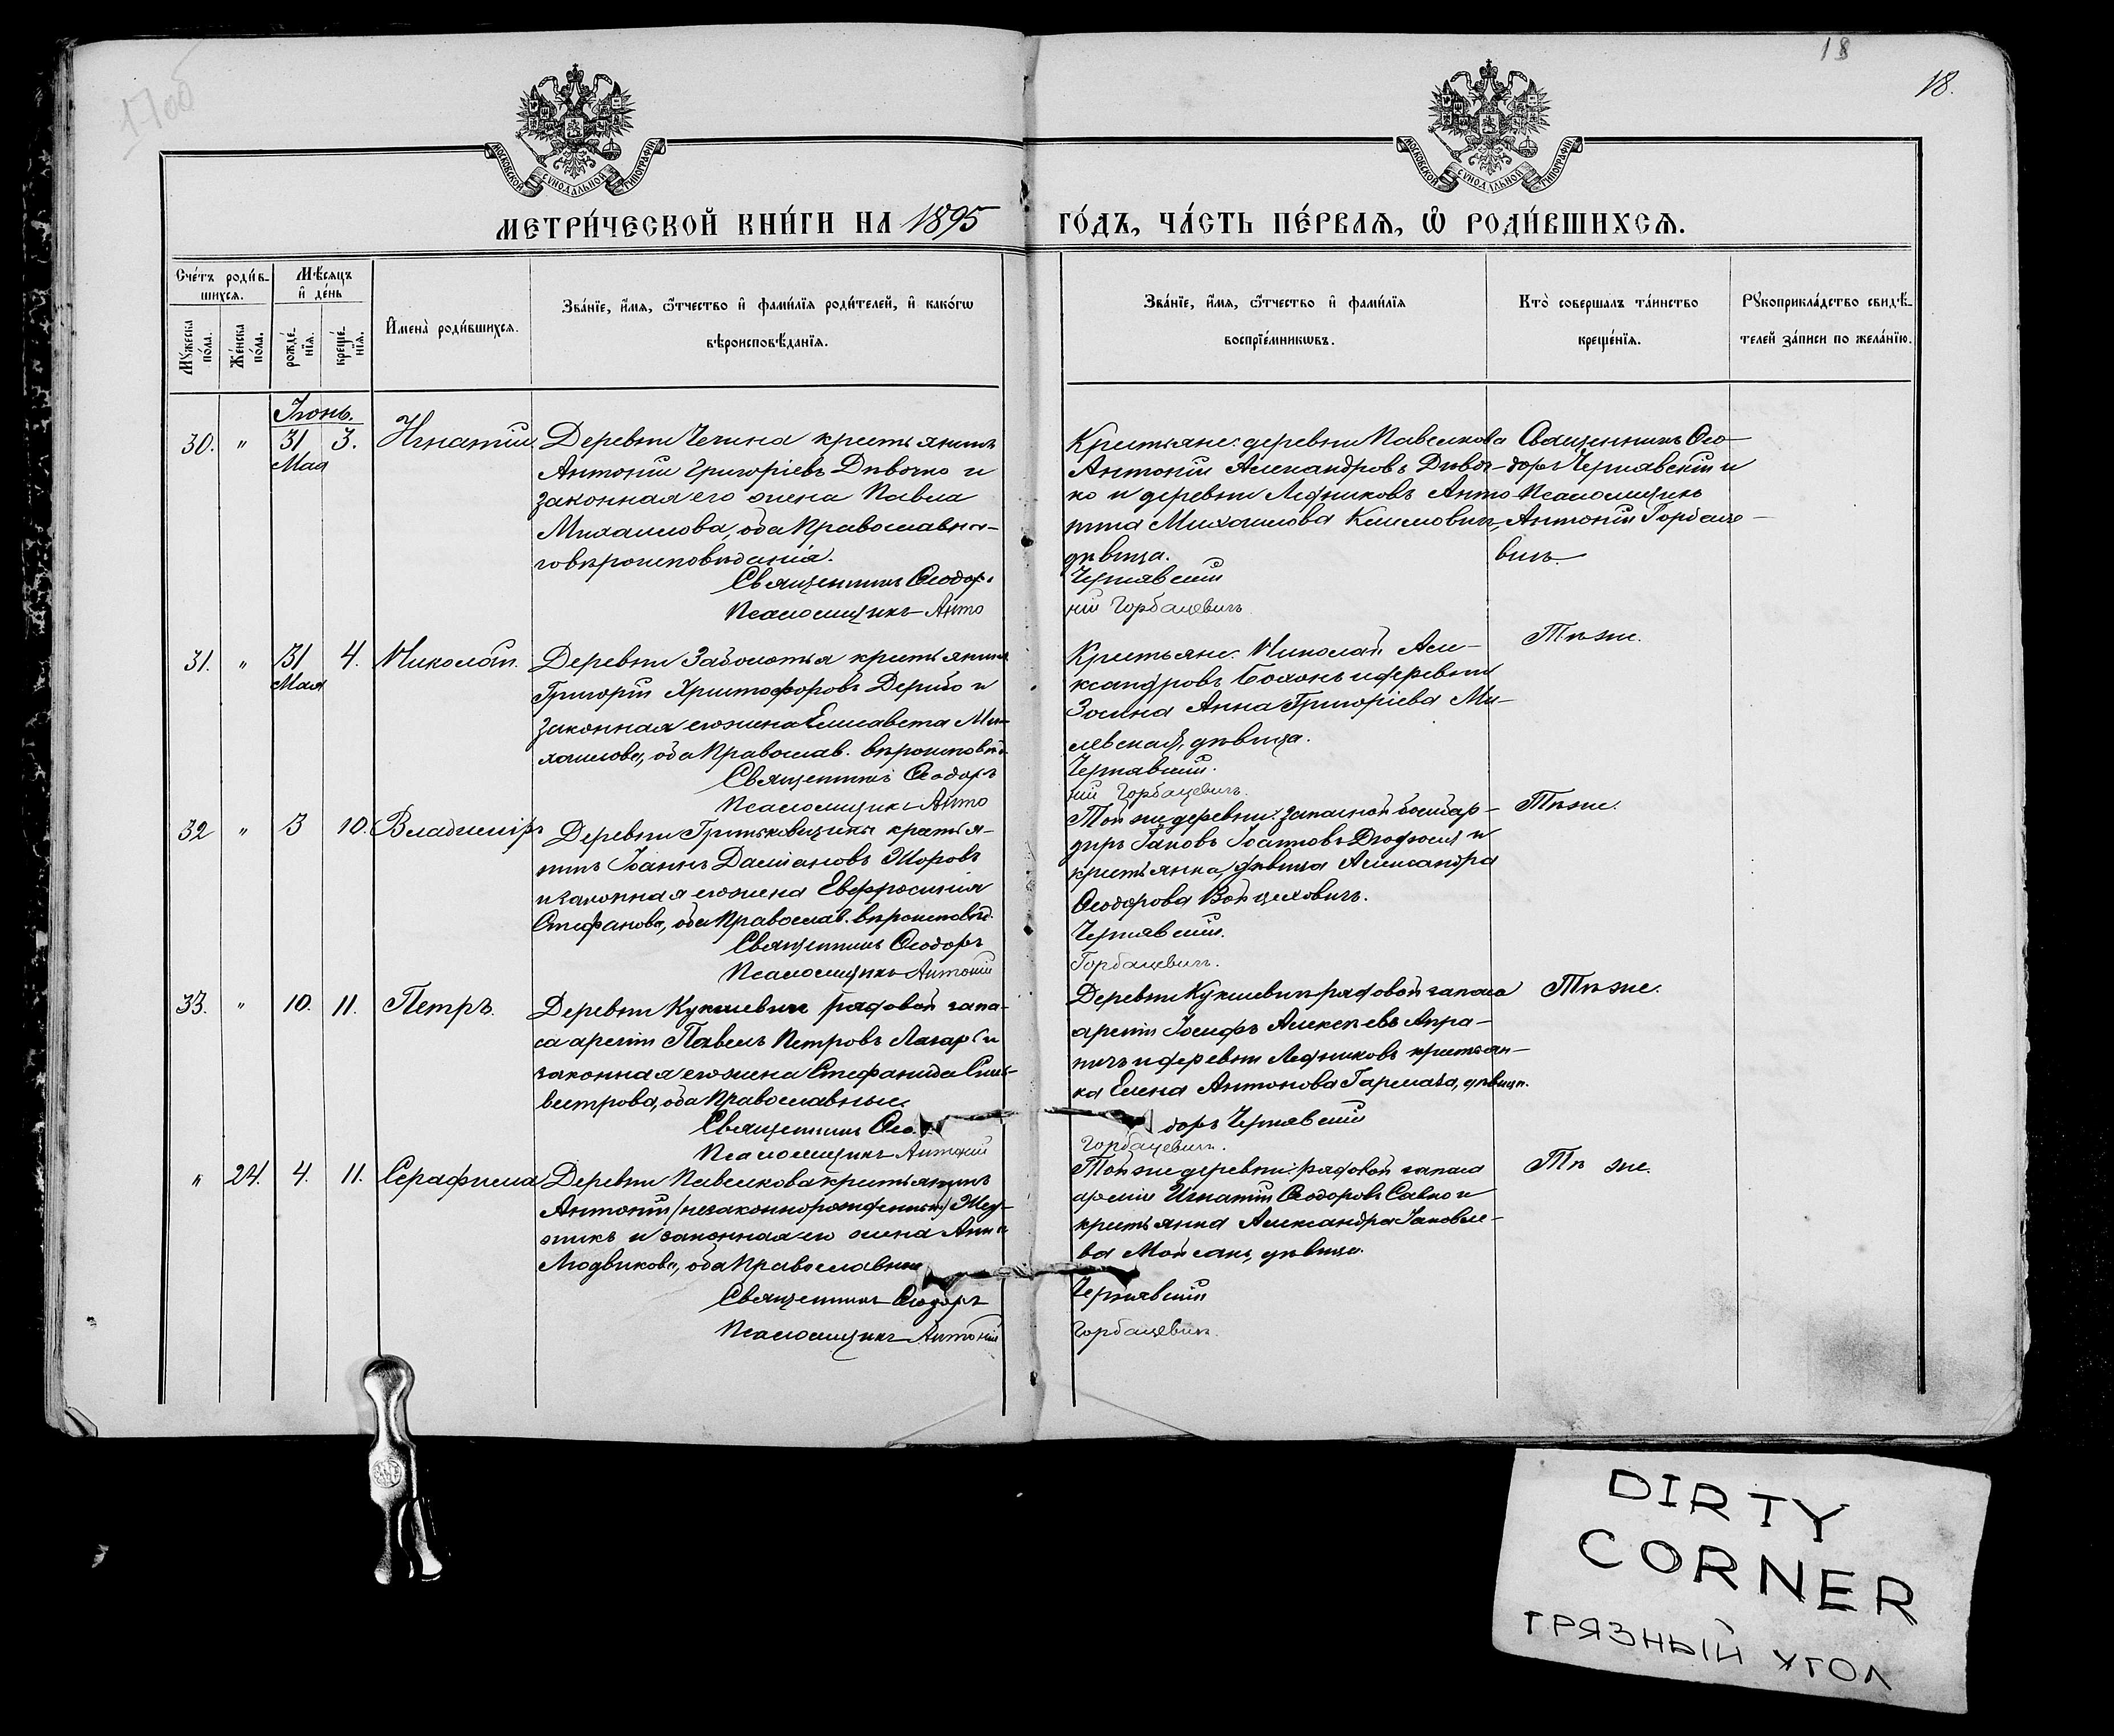 1700
18
18.
МОСКОВСКОЙ СѴНОДАЛЬНОЙ ТИПОГРАФІИ
МОСКОВСКОЙ СѴНОДАЛЬНОЙ ТИПОГРАФІИ
МЕТРИ́ЧЕСКОЙ КНИ́ГИ НА 1895 ГО́ДЪ, ЧА́СТЬ ПЕ́РВАѦ, Ѿ РОДИ́ВШИХСѦ.
Сче́тъ роди́в-
шихсѧ.
Мѣ́сѧцъ
и҆ де́нь
Мꙋжеска
по́ла.
Же́нска
по́ла.
рожде́-
нїѧ.
креще́-
нїѧ.
И҆мена̀ роди́вшихсѧ.
Зва́нїе, и҆́мѧ, ѻ҆́тчество и҆ фами́лїѧ роди́телей, и҆ како́гѡ
вѣроисповѣ́данїѧ.
Зва́нїе, и҆́мѧ, ѻ҆́тчество и҆ фами́лїѧ
воспрїе́мникѡвъ.
Кто̀ совершалъ та́инство
креще́нїѧ.
Рꙋкоприкла́дство свидѣ́-
телей за́писи по жела́нїю.
Іюнь.
30. " 31 Мая 3. Игнатій
Деревни Чечина крестьянинъ
Антоній Григоріевъ Дивочко и
законная его жена Павла
Михаилова, оба Православна-
го вѣроисповѣданія.
Священникъ Ѳеодоръ
Псаломщикъ Анто
Крестьяне: деревни Павелкова
Антоній Александровъ Дивоч-
ко и деревни Ледниковъ Анто-
нина Михаилова Климовичъ,
дѣвица.
Чернявскій
ній Горбацевичъ
Священникъ Ѳео-
доръ Чернявскій и
Псаломщикъ
Антоній Горбаце-
вичъ
31. " 31 Мая 4. Николай.
Деревни Заболотья крестьянинъ
Григорій Христофоровъ Дерибо и
законная его жена Елисавета Ми-
хаилова, оба Православ. вѣроисповѣд.
Священникъ Ѳеодоръ
Псаломщикъ Анто
Крестьяне: Николай Але-
ксандровъ Болонь и деревни
Зосина Анна Григоріева Ми-
левская, дѣвица.
Чернявскій.
ній Горбацевичъ.
Тѣ же.
32 " 3 10. Владиміръ
Деревни Гриньковщины крестья-
нинъ Іоаннъ Даміановъ Жоровъ
и законная его жена Евфросинія
Стефанова, оба Православ. вѣроисповѣд.
Священникъ Ѳеодоръ
Псаломщикъ Антоній
Той же деревни: запасной бомбар-
диръ Іаковъ Іоанновъ и
крестьянка, дѣвица Александра
Ѳеодорова Войцеховичъ.
Чернявскій.
Горбацевичъ.
Тѣ же.
33. " 10. 11. Петръ.
Деревни Кукшевичи рядовой запа-
са арміи Павелъ Петровъ Лазар и
законная его жена Стефанида Силь-
вестрова, оба Православные.
Священникъ Ѳео
Псаломщикъ Антоній
Деревни Кукшевичъ рядовой запаса
арміи Іосифъ Алексѣевъ Апра-
ничъ и деревни Ледниковъ крестьян-
ка Елена Антонова Гармаза, дѣвица.
доръ Чернявскій
Горбацевичъ.
Тѣ же.
" 24. 4. 11. Серафима
Деревни Павелкова крестьянинъ
Антоній (незаконнорожденный) Жу-
никъ и законная его жена Анна
Людвикова, оба Православные
Священникъ Ѳеодоръ
Псаломщикъ Антоній
Той же деревни: рядовой запаса
арміи Игнатій Ѳеодоровъ Савко и
крестьянка Александра Іаковле-
ва Мойсакъ, дѣвица.
Чернявскій
Горбацевичъ.
Тѣ же.
DIRTY
CORNER
ГРЯЗНЫЙ УГОЛ